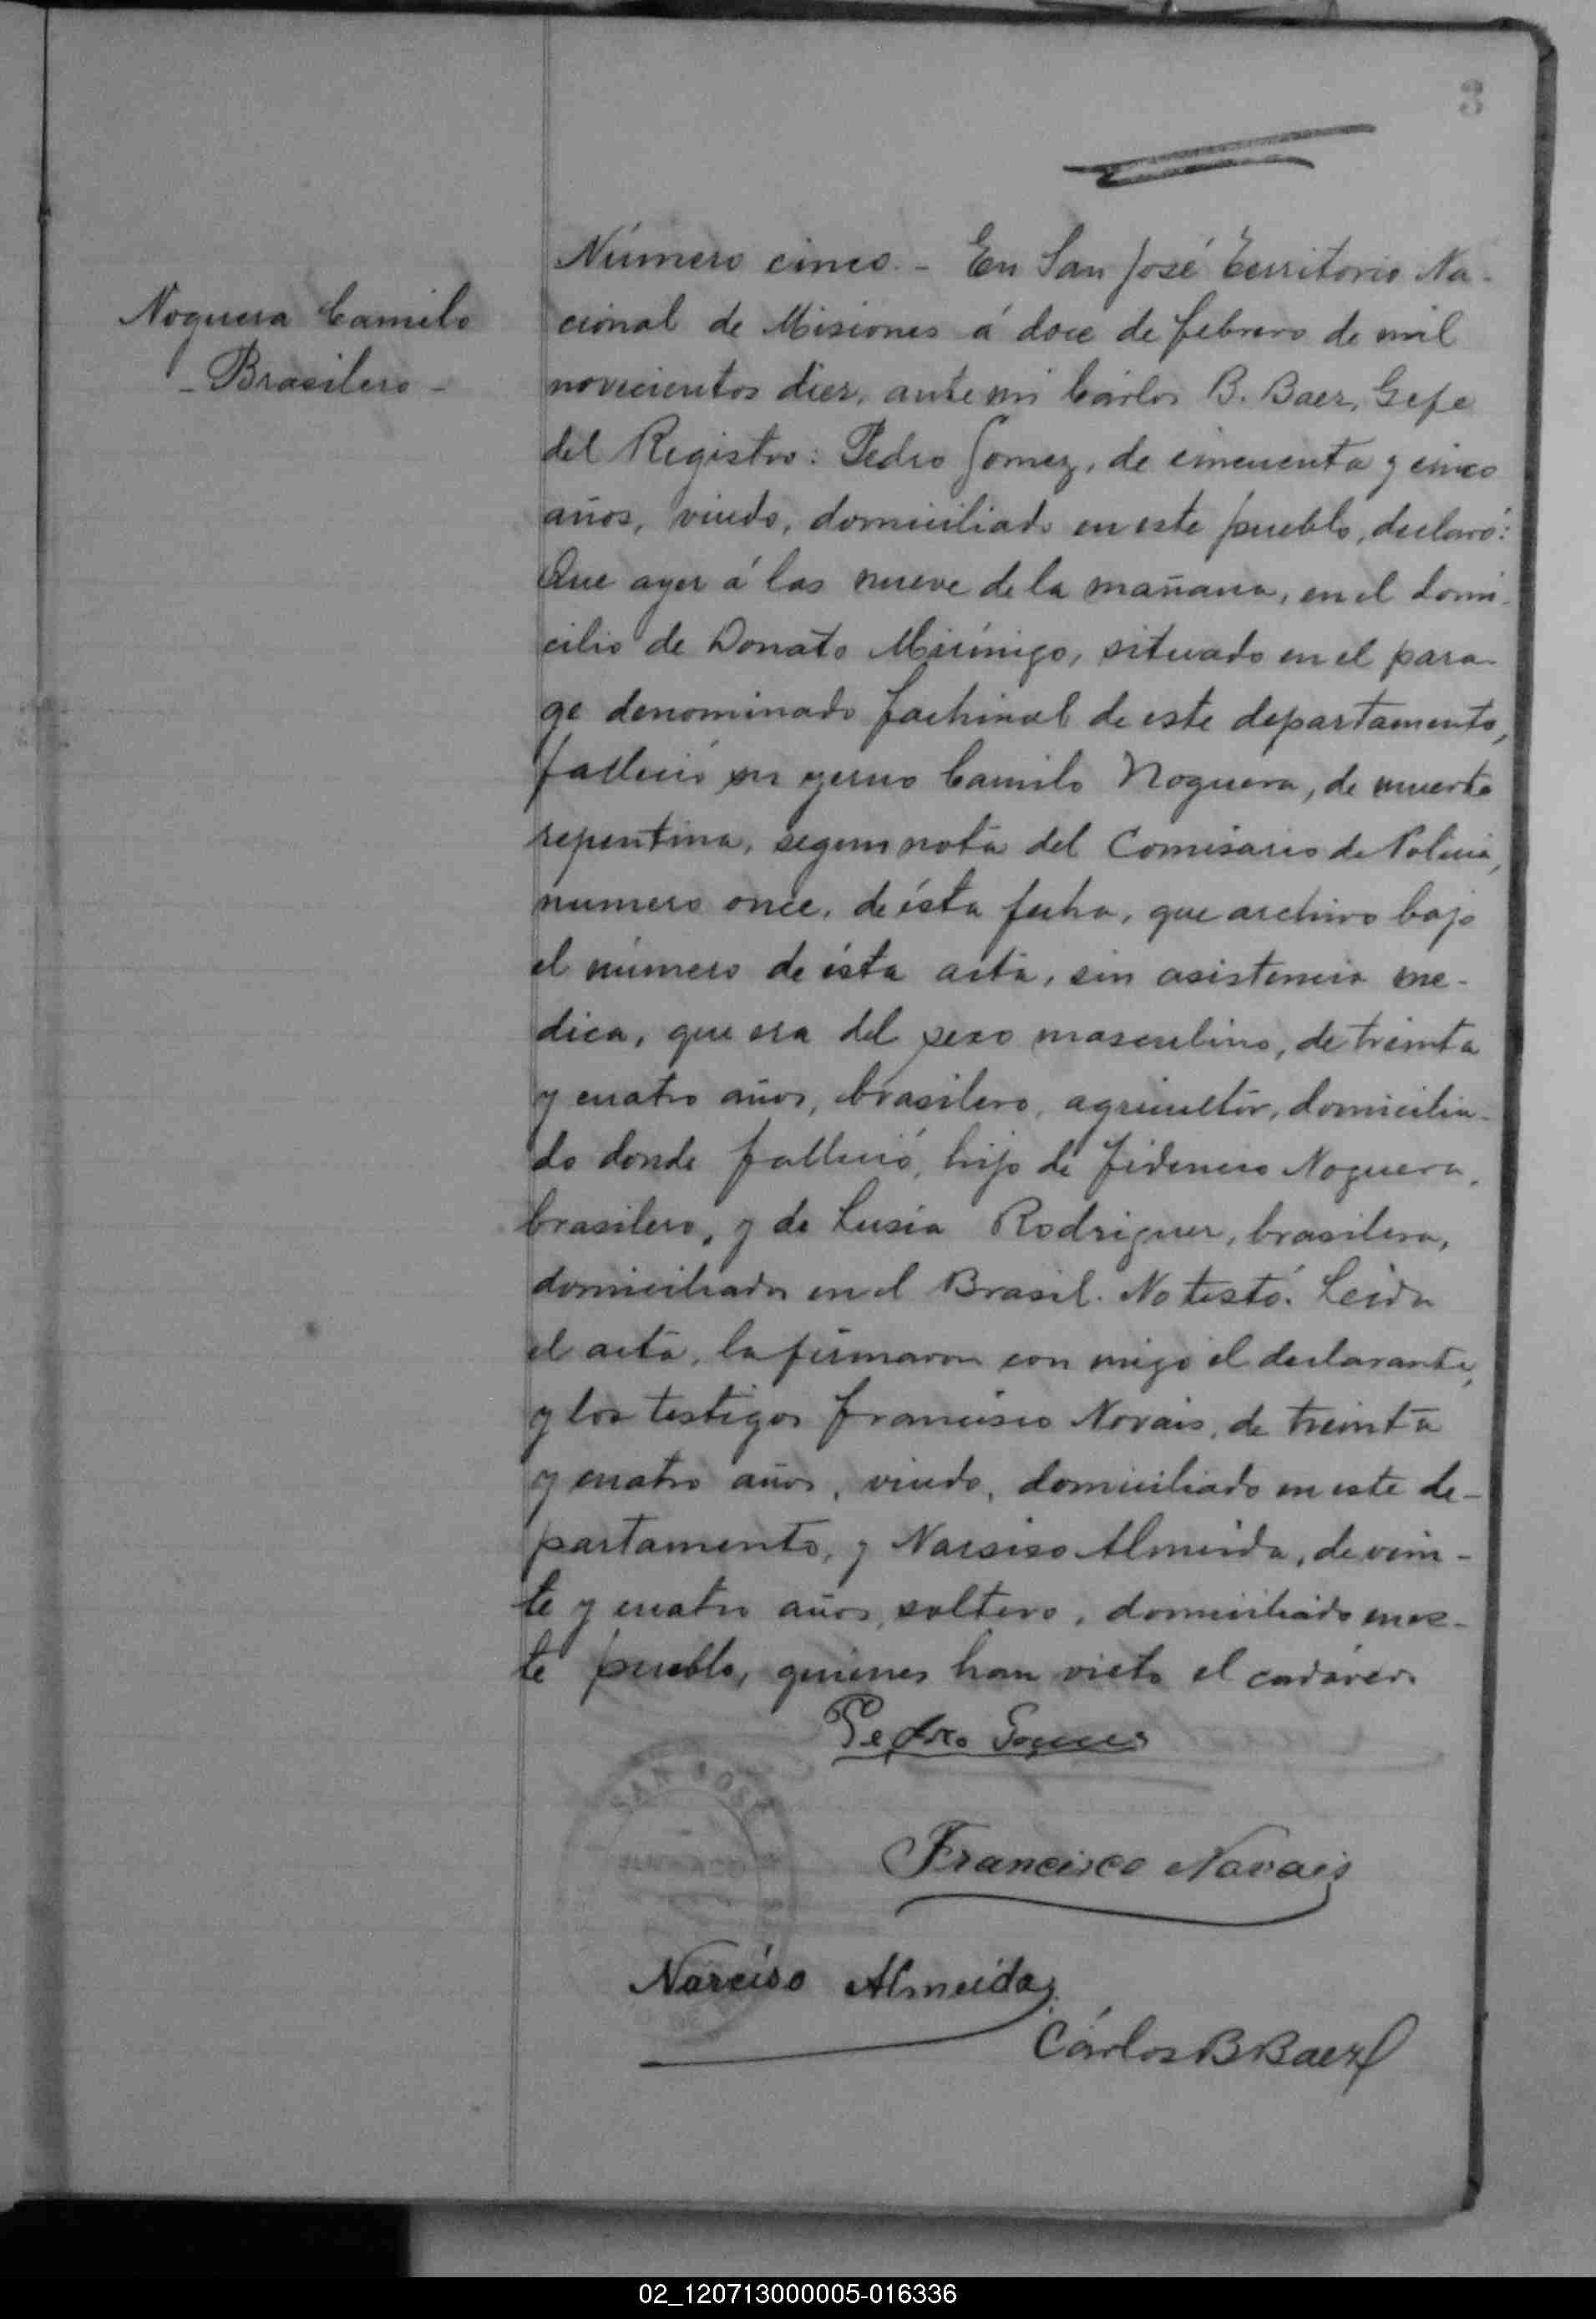 3
Noguera Camilo
- Brasilero -
Número cinco. - En San José Territorio Na-
cional de Misiones á doce de febrero de mil
novecientos diez, ante mi Cárlos B. Baez, Gefe
del Registro: Pedro Gomez, de cincuenta y cinco
años, viudo, domiciliado en este pueblo, declaró:
Que ayer á las nueve de la mañana, en el domi-
cilio de Donato Mirínigo, situado en el para-
ge denominado fachinal de este departamento,
falleció su yerno Camilo Noguera, de muerte
repentina, segun nota del Comisario de Policia,
numero once, de ésta fecha, que archivo bajo
el número de ésta acta, sin asistencia me-
dica, que era del sexo masculino, de treinta
y cuatro años, brasilero, agricultor, domicilia-
do donde falleció, hijo de fidencio Noguera,
brasilero, y de Lusia Rodriguez, brasilera,
domiciliados en el Brasil. No testó. Leida
el acta, la firmaron con migo el declarante,
y los testigos francisco Novais, de treinta
y cuatro años, viudo, domiciliado en este de-
partamento, y Narsiso Almeida, de vein-
te y cuatro años, soltero, domiciliado en es-
te pueblo, quienes han visto el cadáver.
Pedro Gomes
SAN JOSE
Francisco Novais
Narciso Almeida
Cárlos B Baez
02_120713000005-016336